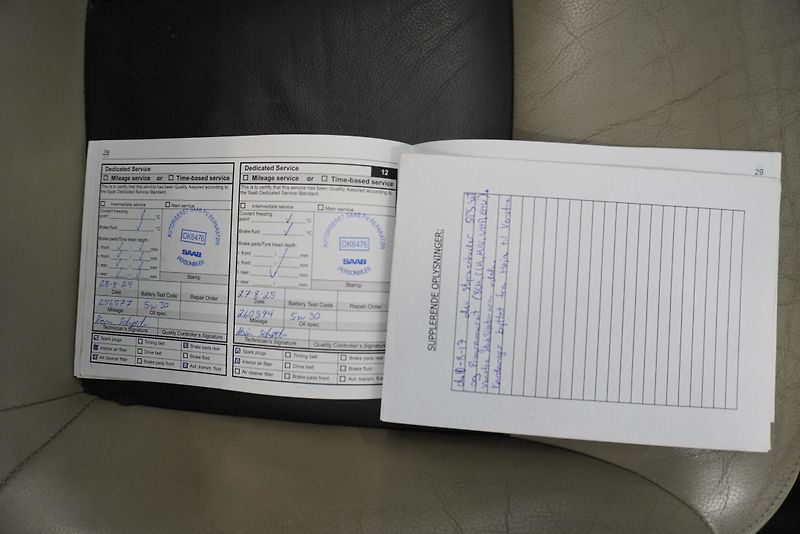 28
Dedicated Service
Mileage service or Time-based service
This is to certify that this service has been Quality Assured according to
the Saab Dedicated Service Standard.
Intermediate service Main service
Coolant freezing
point: °C
Brake fluid: °C
Brake pads/Tyre tread depth:
l. front: / mm
r. front: / mm
l. rear: / mm
r. rear: / mm
AUTORISERET SAAB PV REPARATØR
DK6476
SAAB
PERSONBILER
Stamp
28-8-24
Date Battery Test Code Repair Order
256577 5w30
Mileage Oil spec.
Technician's Signature Quality Controller's Signature
Spark plugs Timing belt Brake pads rear
Interior air filter Drive belt Brake fluid
Air cleaner filter Brake pads front Aut. transm. fluid
Dedicated Service 12
Mileage service or Time-based service
This is to certify that this service has been Quality Assured according to
the Saab Dedicated Service Standard.
Intermediate service Main service
Coolant freezing
point: °C
Brake fluid: °C
Brake pads/Tyre tread depth:
l. front: mm
r. front: mm
l. rear: mm
r. rear: mm
AUTORISERET SAAB PV REPARATØR
DK6476
SAAB
PERSONBILER
Stamp
27-8-25
Date Battery Test Code Repair Order
260594 5w30
Mileage Oil spec.
Technician's Signature Quality Controller's Signature
Spark plugs Timing belt Brake pads
Interior air filter Drive belt Brake fluid
Air cleaner filter Brake pads front Aut. transm. fluid
29
SUPPLERENDE OPLYSNINGER:
og Programmeret
til Venstre